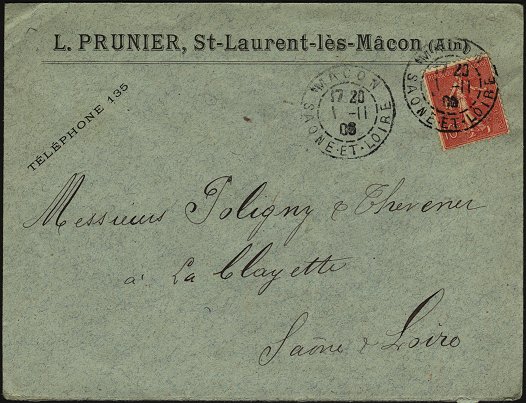 L. PRUNIER, St-Laurent-lès-Mâcon (Ain)
TÉLÉPHONE 135
MACON
17 20
1 -11
06
SAONE-ET-LOIRE
MACON
17 20
1 -11
06
SAONE-ET-LOIRE
Messieurs Poligny & Thevenet
à La Clayette
Saône & Loire